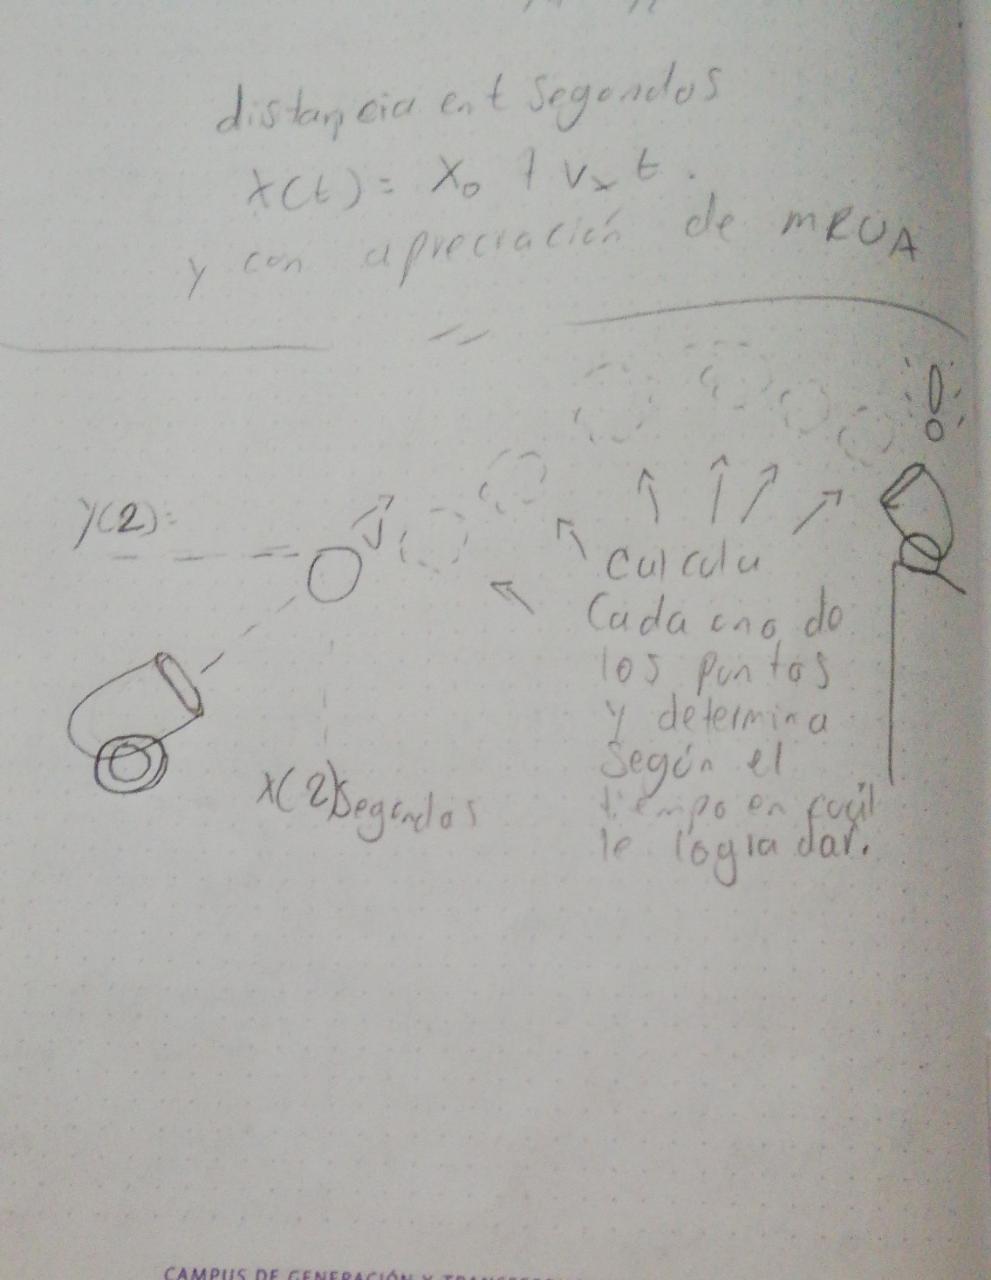 distancia en t segundos
x(t) = x₀ + vₓ t.
y con apreciación de MRUA
y(2):
v
!
calcula
Cada uno de
los puntos
y determina
Según el
tiempo en cuál
le logra dar.
x(2) segundos
CAMPUS DE GENERACIÓN Y